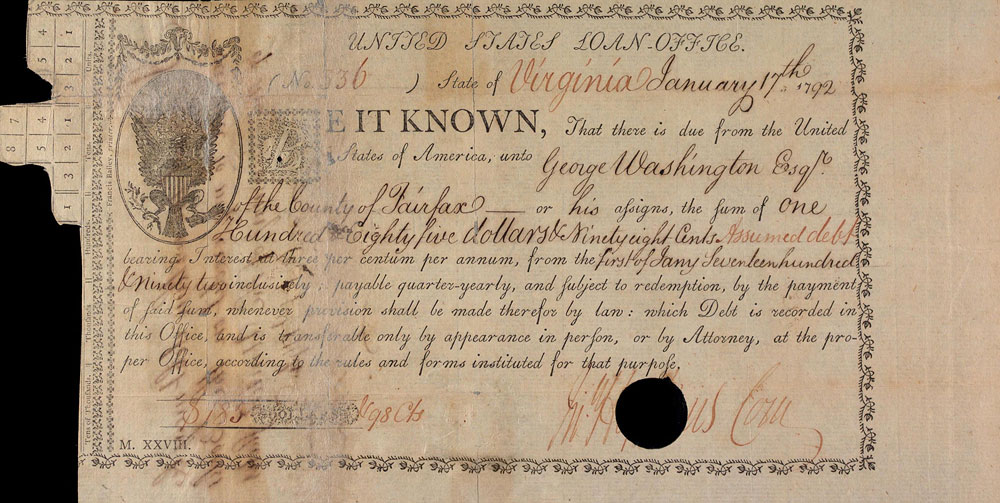 UNITED STATES LOAN-OFFICE.
(No. 336 ) State of Virginia January 17th 1792
BE IT KNOWN, That there is due from the United
States of America, unto George Washington Esqr.
of the County of Fairfax — or his aſſigns, the ſum of One
Hundred & Eighty five dollars & Ninety eight Cents Assumed debt
bearing Intereſt at three per centum per annum, from the first of Jany Seventeen hundred
& Ninety two incluſively, payable quarter-yearly, and ſubject to redemption, by the payment
of ſaid ſum, whenever proviſion ſhall be made therefor by law: which Debt is recorded in
this Office, and is transferable only by appearance in perſon, or by Attorney, at the pro-
per Office, according to the rules and forms inſtituted for that purpoſe.
$185 98 Cts
Com
M. XXVIII.
5 2 1
4 3
7 5 2 1
8 4 3 1
Units.
Tens of Thouſands.
Francis Bailey,